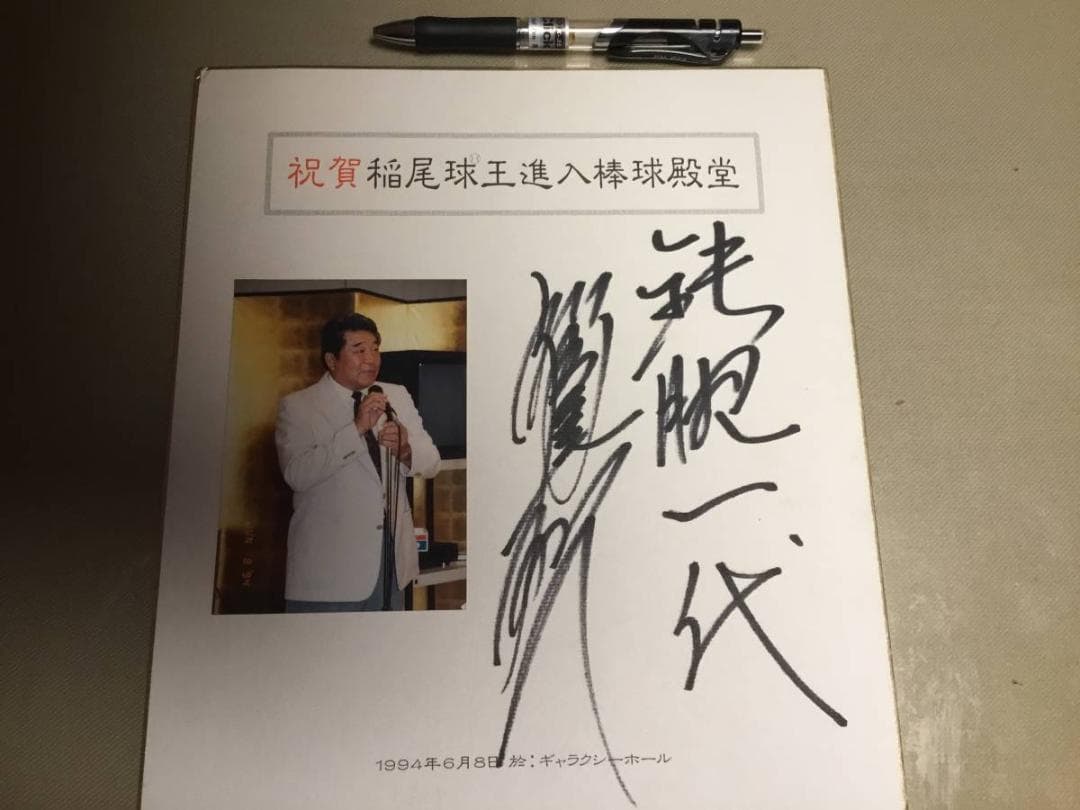 祝賀稲尾球王進入棒球殿堂
鉄腕一代
1994年6月8日 於:ギャラクシーホール